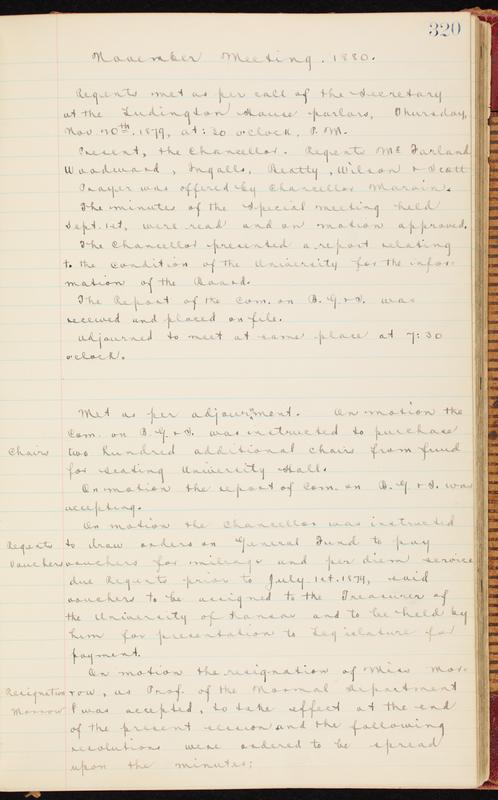 320
November Meeting. 1880.
Regents met as per call of the Secretary
at the Ludington House parlors, Thursday,
Nov. 20th, 1879, at: 30 oclock, P. M.
Present, the Chancellor. Regents Mc Farland
Woodward, Ingalls, Beatty, Wilson & Scott
Prayer was offered by Chancellor Marvin.
The minutes of the Special meeting held
Sept. 1st, were read and on motion approved.
The Chancellor presented a report relating
to the condition of the University for the infor-
mation of the Board.
The Report of the Com. on B. G. & I. was
received and placed on file.
Adjourned to meet at same place at 7:30
oclock.
Met as per adjournment. On motion the
Com. on B. G. & I. was instructed to purchase
Chairs two hundred additional chair from fund
for seating University Hall.
On motion the report of Com. on B. G & I. was
accepting.
On motion the Chancellor was instructed
Regents to draw orders on General Fund to pay
Vouchers vouchers for mileage and per diem service
due Regents prior to July 1st. 1879, said
vouchers to be assigned to the Treasurer of
the University of Kansas and to be held by
him for presentation to Legislature for
payment.
On motion the resignation of Miss Mor-
Resignation row, as Prof. of the Normal Department
Morrow was accepted, to take effect at the end
of the present session and the following
resolutions were ordered to be spread
upon the minutes: